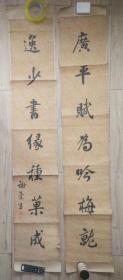 廣平賦為吟梅就
逸少書緣種菓成